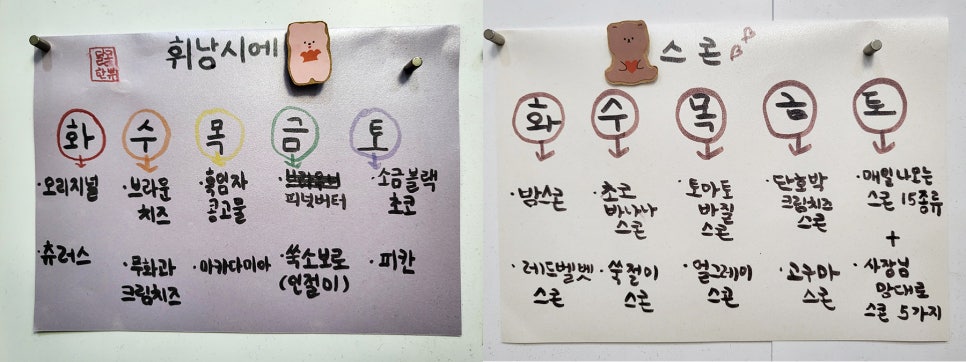 휘낭시에
화 수 목 금 토
·오리지널
·브라운
치즈
·흑임자
콩고물
피넛버터
·소금블랙
초코
·츄러스
·무화과
크림치즈
·마카다미아
·쑥소보로
(인절미)
·피칸
스콘
화 수 목 금 토
·밤스콘
·초코
바나나
스콘
·토마토
바질
스콘
·단호박
크림치즈
스콘
·매일 나오는
스콘 15종류
+
·레드벨벳
스콘
·쑥절미
스콘
·얼그레이
스콘
·고구마
스콘
·사장님
맘대로
스콘 5가지